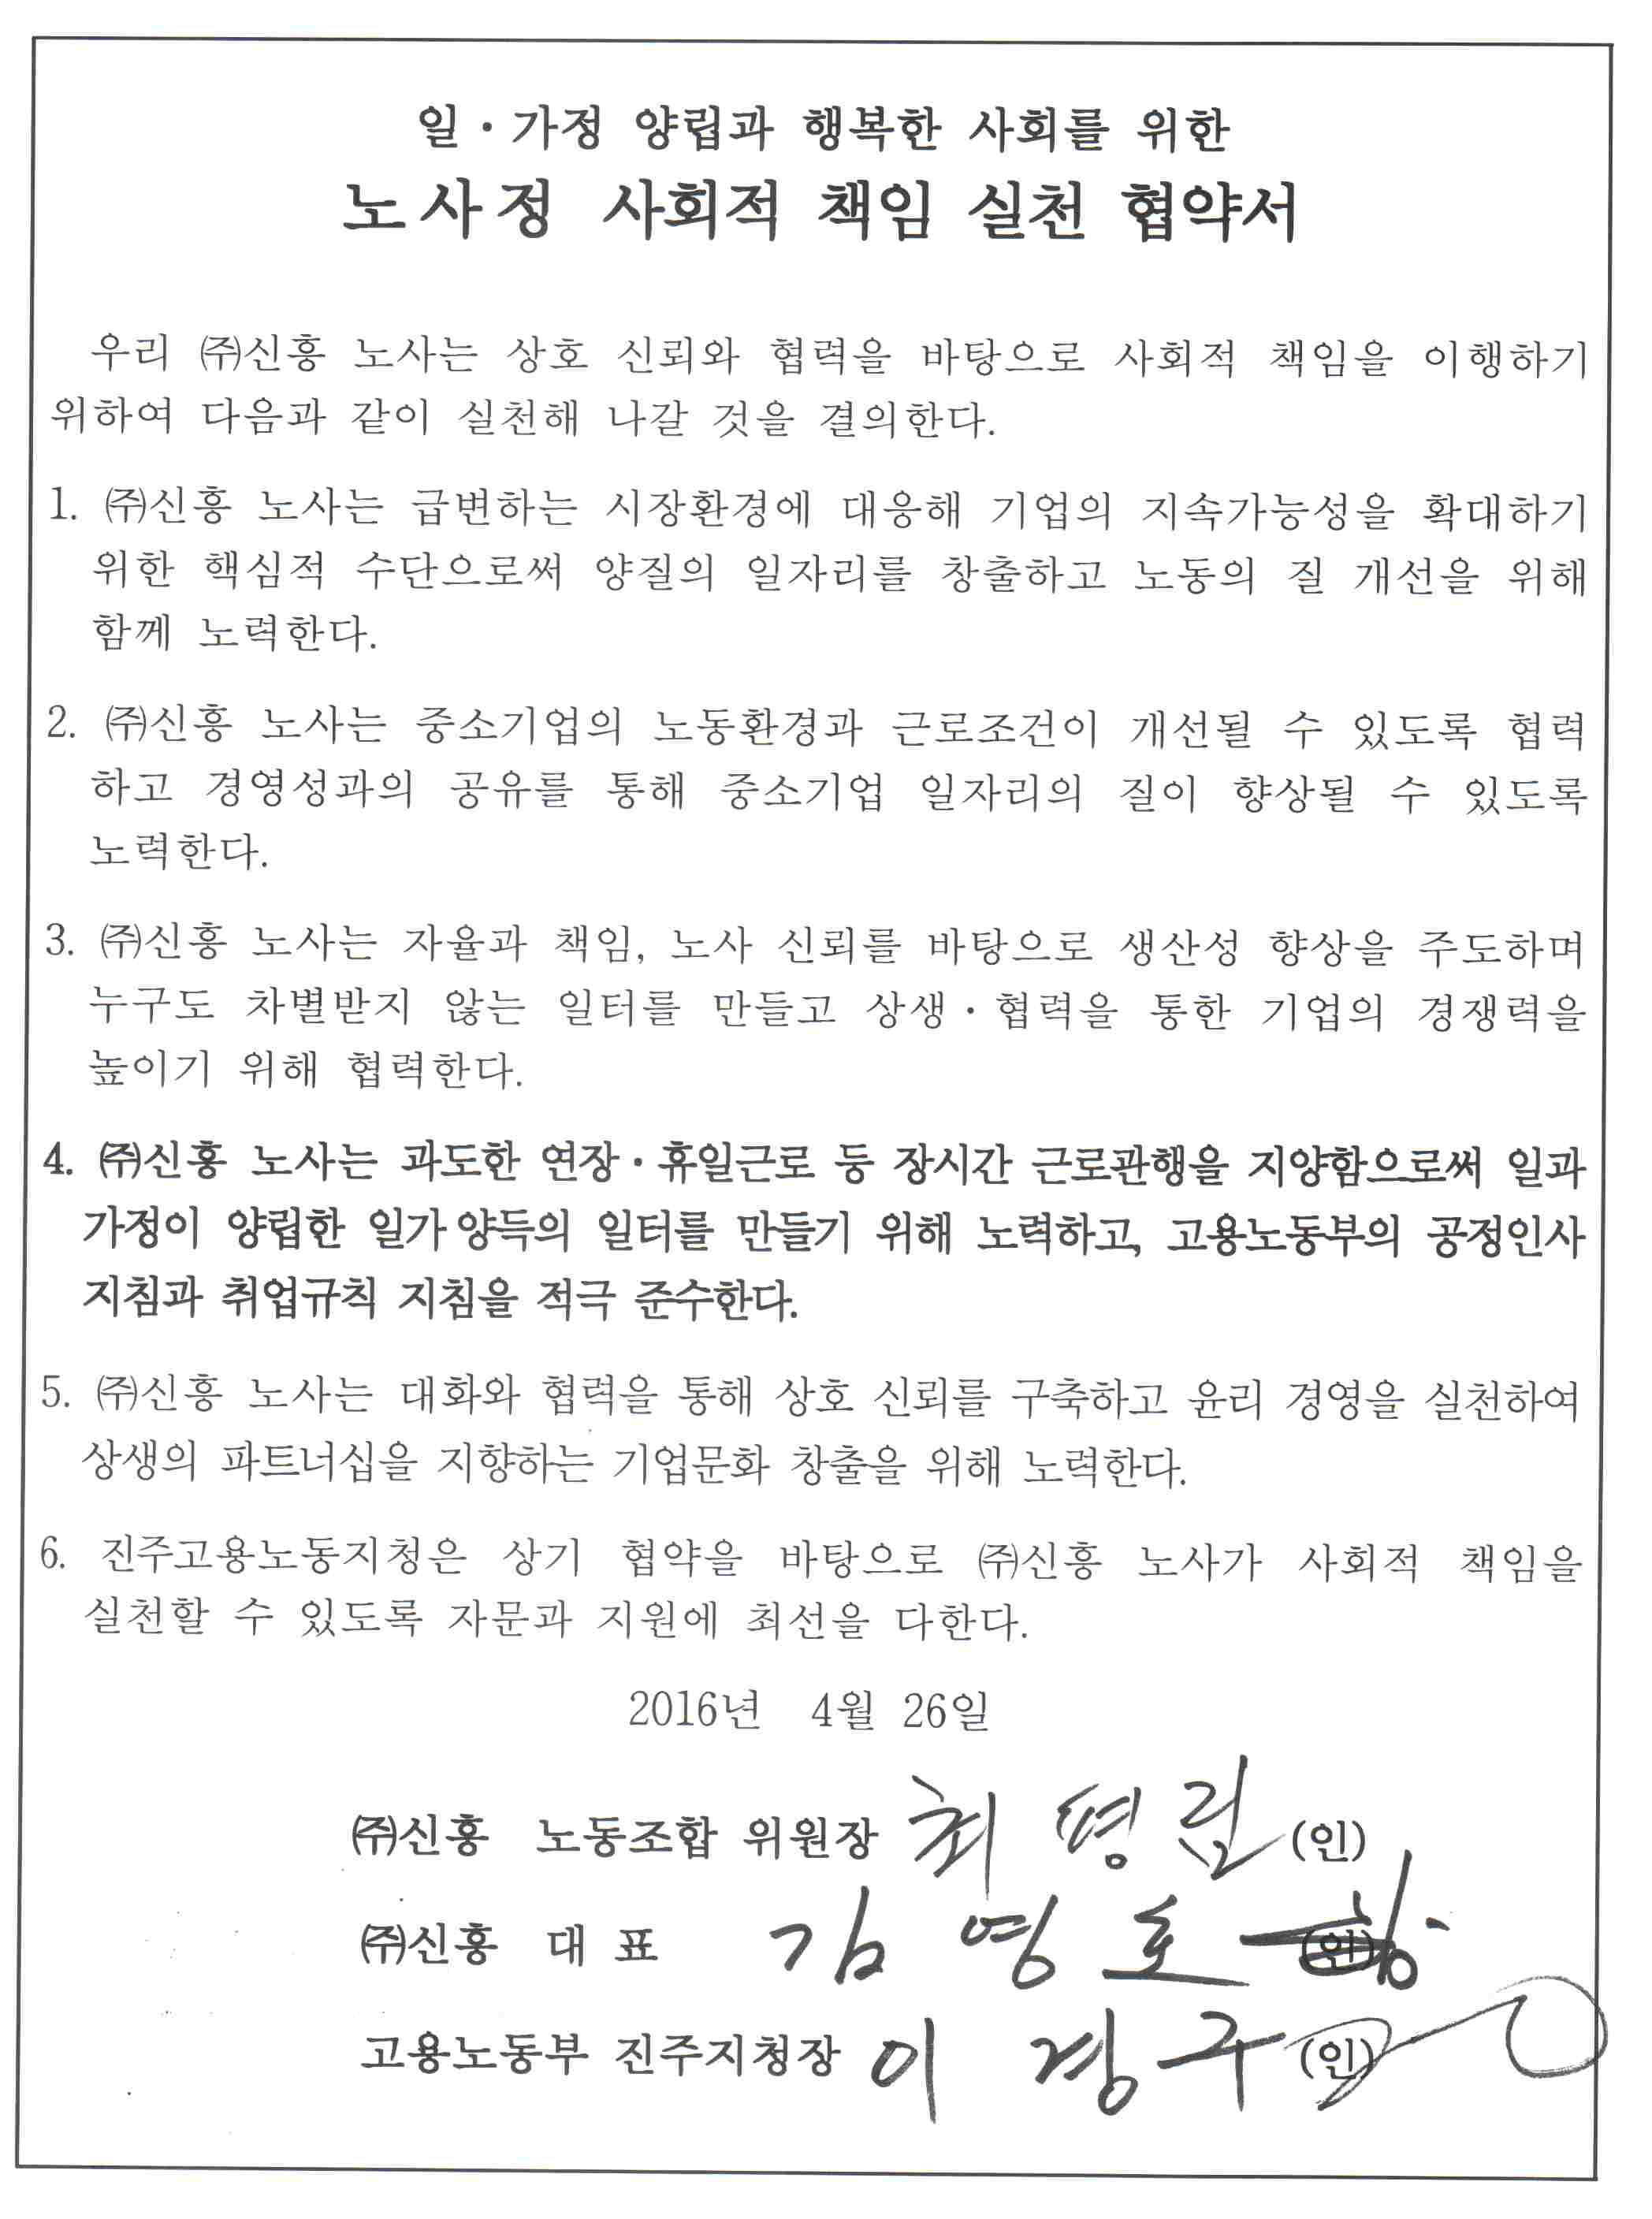 일·가정 양립과 행복한 사회를 위한
노사정 사회적 책임 실천 협약서
우리 ㈜신흥 노사는 상호 신뢰와 협력을 바탕으로 사회적 책임을 이행하기
위하여 다음과 같이 실천해 나갈 것을 결의한다.
1. ㈜신흥 노사는 급변하는 시장환경에 대응해 기업의 지속가능성을 확대하기
위한 핵심적 수단으로써 양질의 일자리를 창출하고 노동의 질 개선을 위해
함께 노력한다.
2. ㈜신흥 노사는 중소기업의 노동환경과 근로조건이 개선될 수 있도록 협력
하고 경영성과의 공유를 통해 중소기업 일자리의 질이 향상될 수 있도록
노력한다.
3. ㈜신흥 노사는 자율과 책임, 노사 신뢰를 바탕으로 생산성 향상을 주도하며
누구도 차별받지 않는 일터를 만들고 상생·협력을 통한 기업의 경쟁력을
높이기 위해 협력한다.
4. ㈜신흥 노사는 과도한 연장·휴일근로 등 장시간 근로관행을 지양함으로써 일과
가정이 양립한 일가양득의 일터를 만들기 위해 노력하고, 고용노동부의 공정인사
지침과 취업규칙 지침을 적극 준수한다.
5. ㈜신흥 노사는 대화와 협력을 통해 상호 신뢰를 구축하고 윤리 경영을 실천하여
상생의 파트너십을 지향하는 기업문화 창출을 위해 노력한다.
6. 진주고용노동지청은 상기 협약을 바탕으로 ㈜신흥 노사가 사회적 책임을
실천할 수 있도록 자문과 지원에 최선을 다한다.
2016년 4월 26일
㈜신흥 노동조합 위원장 최평림 (인)
㈜신흥 대 표 김영호 (인)
고용노동부 진주지청장 이경구 (인)